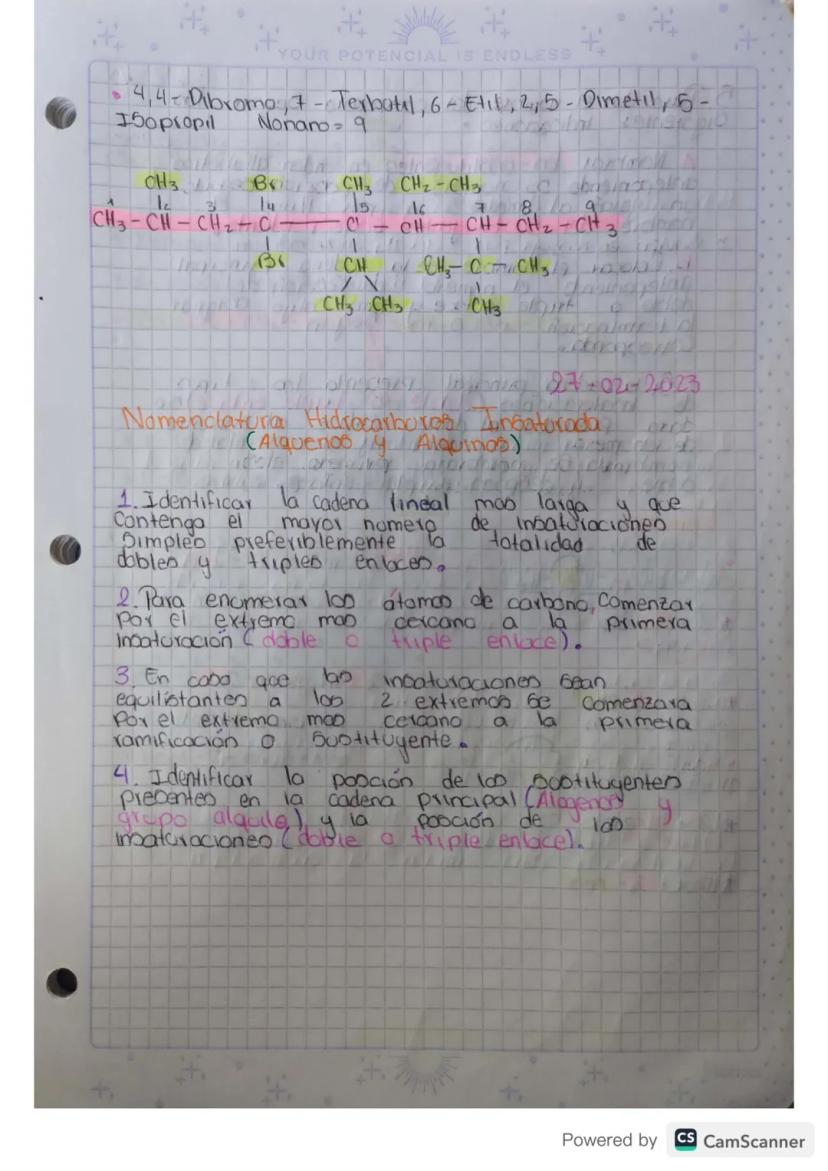 YOUR POTENCIAL IS ENDLESS
• 4,4-Dibromo, 7-Terbutil, 6-Etil, 2,5-Dimetil, 5-
Isopropil Nonano = 9
CH₃ Br CH₃ CH₂-CH₃
1 2 3 4 5 6 7 8 9
CH₃-CH-CH₂-C-C-CH-CH-CH₂-CH₃
Br CH CH₃-C-CH₃
CH₃ CH₃ CH₃
27-02-2023
Nomenclatura Hidrocarburos Insaturada
(Alquenos y Alquinos)
1. Identificar la cadena lineal mas larga y que
contenga el mayor numero de insaturaciones
simples preferiblemente la totalidad de
dobles y triples enlaces.
2. Para enumerar los átomos de carbono, comenzar
por el extremo mas cercano a la primera
insaturación (doble o triple enlace).
3. En caso que las insaturaciones sean
equilistantes a los 2 extremos se comenzara
por el extremo mas cercano a la primera
ramificación o sustituyente.
4. Identificar la posción de los sustituyentes
presentes en la cadena principal (Alogenos y
grupo alquilo) y la posción de las
insaturaciones (doble o triple enlace).
Powered by CS CamScanner